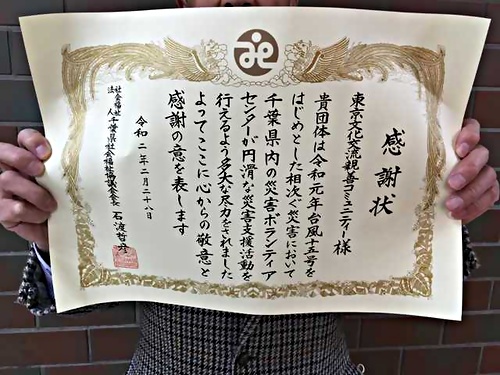 感謝状
東京文化交流親善コミュニティー様
貴団体は令和元年台風十五号を
はじめとした相次ぐ災害において
千葉県内の災害ボランティア
センターが円滑な災害支援活動を
行えるよう多大な尽力をされました
よってここに心からの敬意と
感謝の意を表します
令和二年二月二十八日
社会福祉法人千葉県社会福祉協議会会長 石渡哲彦